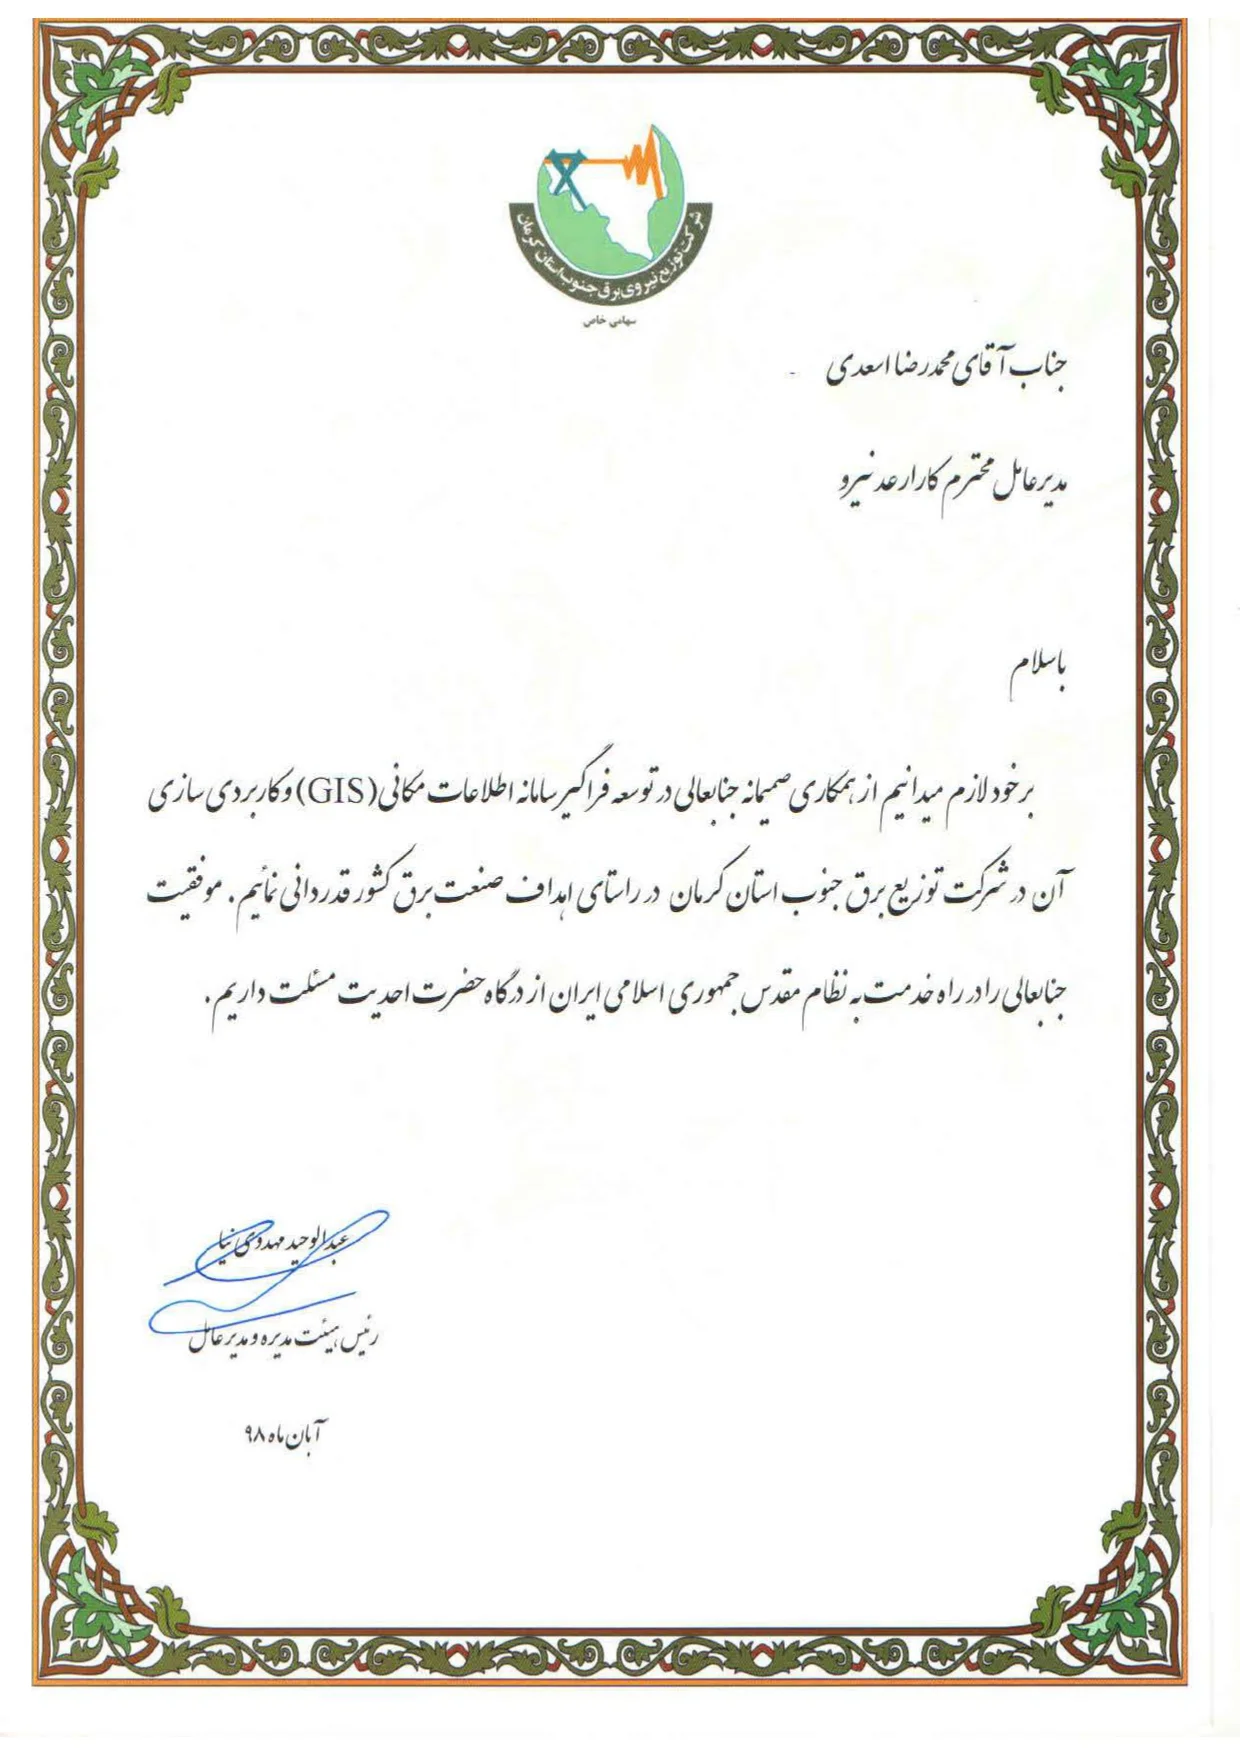 شرکت توزیع نیروی برق جنوب استان کرمان
سهامی خاص
جناب آقای محمدرضا اسعدی
مدیرعامل محترم کارا رعد نیرو
باسلام
برخود لازم میدانیم از همکاری صمیمانه جنابعالی در توسعه فراگیر سامانه اطلاعات مکانی (GIS) و کاربردی سازی
آن در شرکت توزیع برق جنوب استان کرمان در راستای اهداف صنعت برق کشور قدردانی نمائیم. موفقیت
جنابعالی را در راه خدمت به نظام مقدس جمهوری اسلامی ایران از درگاه حضرت احدیت مسئلت داریم.
عبدالوحید مهدوی نیا
رئیس هیئت مدیره و مدیرعامل
آبان ماه ۹۸